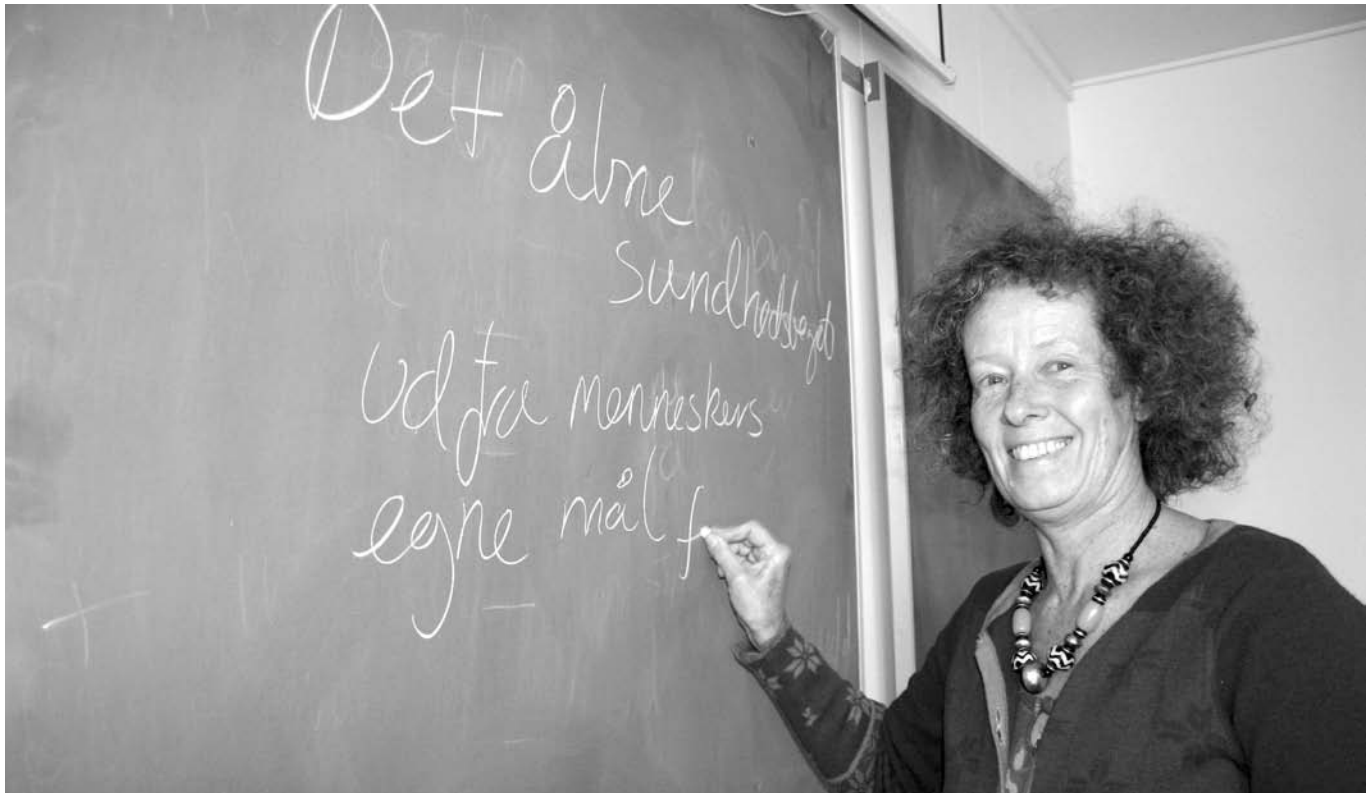 Det åbne
sundhedsbegreb
ud fra menneskers
egne mål f